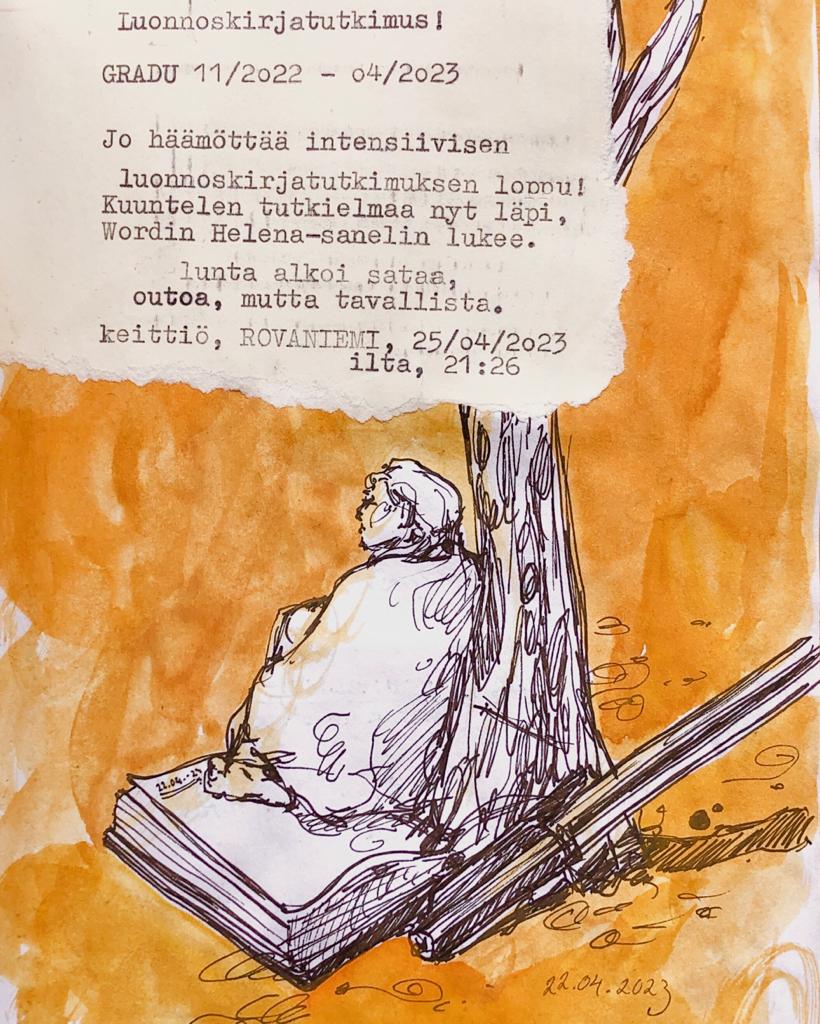 Luonnoskirjatutkimus!
GRADU 11/2022 - 04/2023
Jo häämöttää intensiivisen
luonnoskirjatutkimuksen loppu!
Kuuntelen tutkielmaa nyt läpi,
Wordin Helena-sanelin lukee.
lunta alkoi sataa,
outoa, mutta tavallista.
keittiö, ROVANIEMI, 25/04/2023
ilta, 21:26
22.04.2023